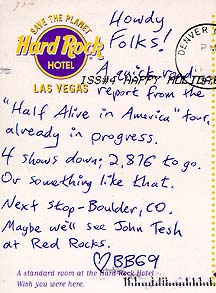 SAVE THE PLANET
Hard Rock
HOTEL
LAS VEGAS
Howdy
Folks!
DENVER C
PM
ISS#4 HAPPY
A quick road
report from the
"Half Alive in America" tour,
already in progress.
4 shows down; 2,896 to go.
Or something like that.
Next stop-Boulder, CO.
Maybe we'll see John Tesh
at Red Rocks.
♡BB69
A standard room at the Hard Rock Hotel
Wish you were here.